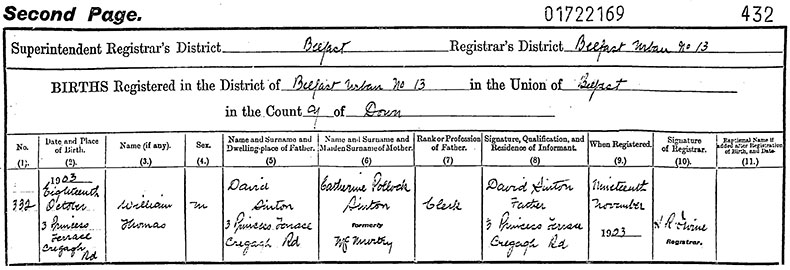 Second Page. 01722169 432
Superintendent Registrar's District Belfast Registrar's District Belfast Urban No 13
BIRTHS Registered in the District of Belfast Urban No 13 in the Union of Belfast
in the County of Down
No. Date and Place of Birth. Name (if any). Sex. Name and Surname and Dwelling-place of Father. Name and Surname and Maiden Surname of Mother. Rank or Profession of Father. Signature, Qualification, and Residence of Informant. When Registered. Signature of Registrar. Baptismal Name if added after Registration of Birth, and Date.
(1). (2). (3). (4). (5) (6) (7) (8) (9.) (10). (11.)
332 1903 Eighteenth October 3 Princess Terrace Cregagh Rd
William Thomas
M
David Sinton 3 Princess Terrace Cregagh Rd
Catherine Pollock Sinton formerly McMurtry
Clerk
David Sinton Father 3 Princess Terrace Cregagh Rd
Nineteenth November 1903
Registrar.